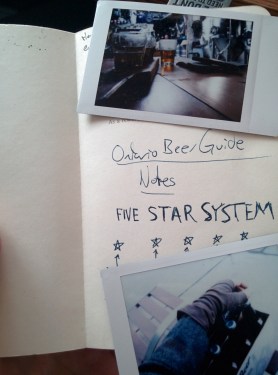 Ontario Beer Guide
Notes
FIVE STAR SYSTEM